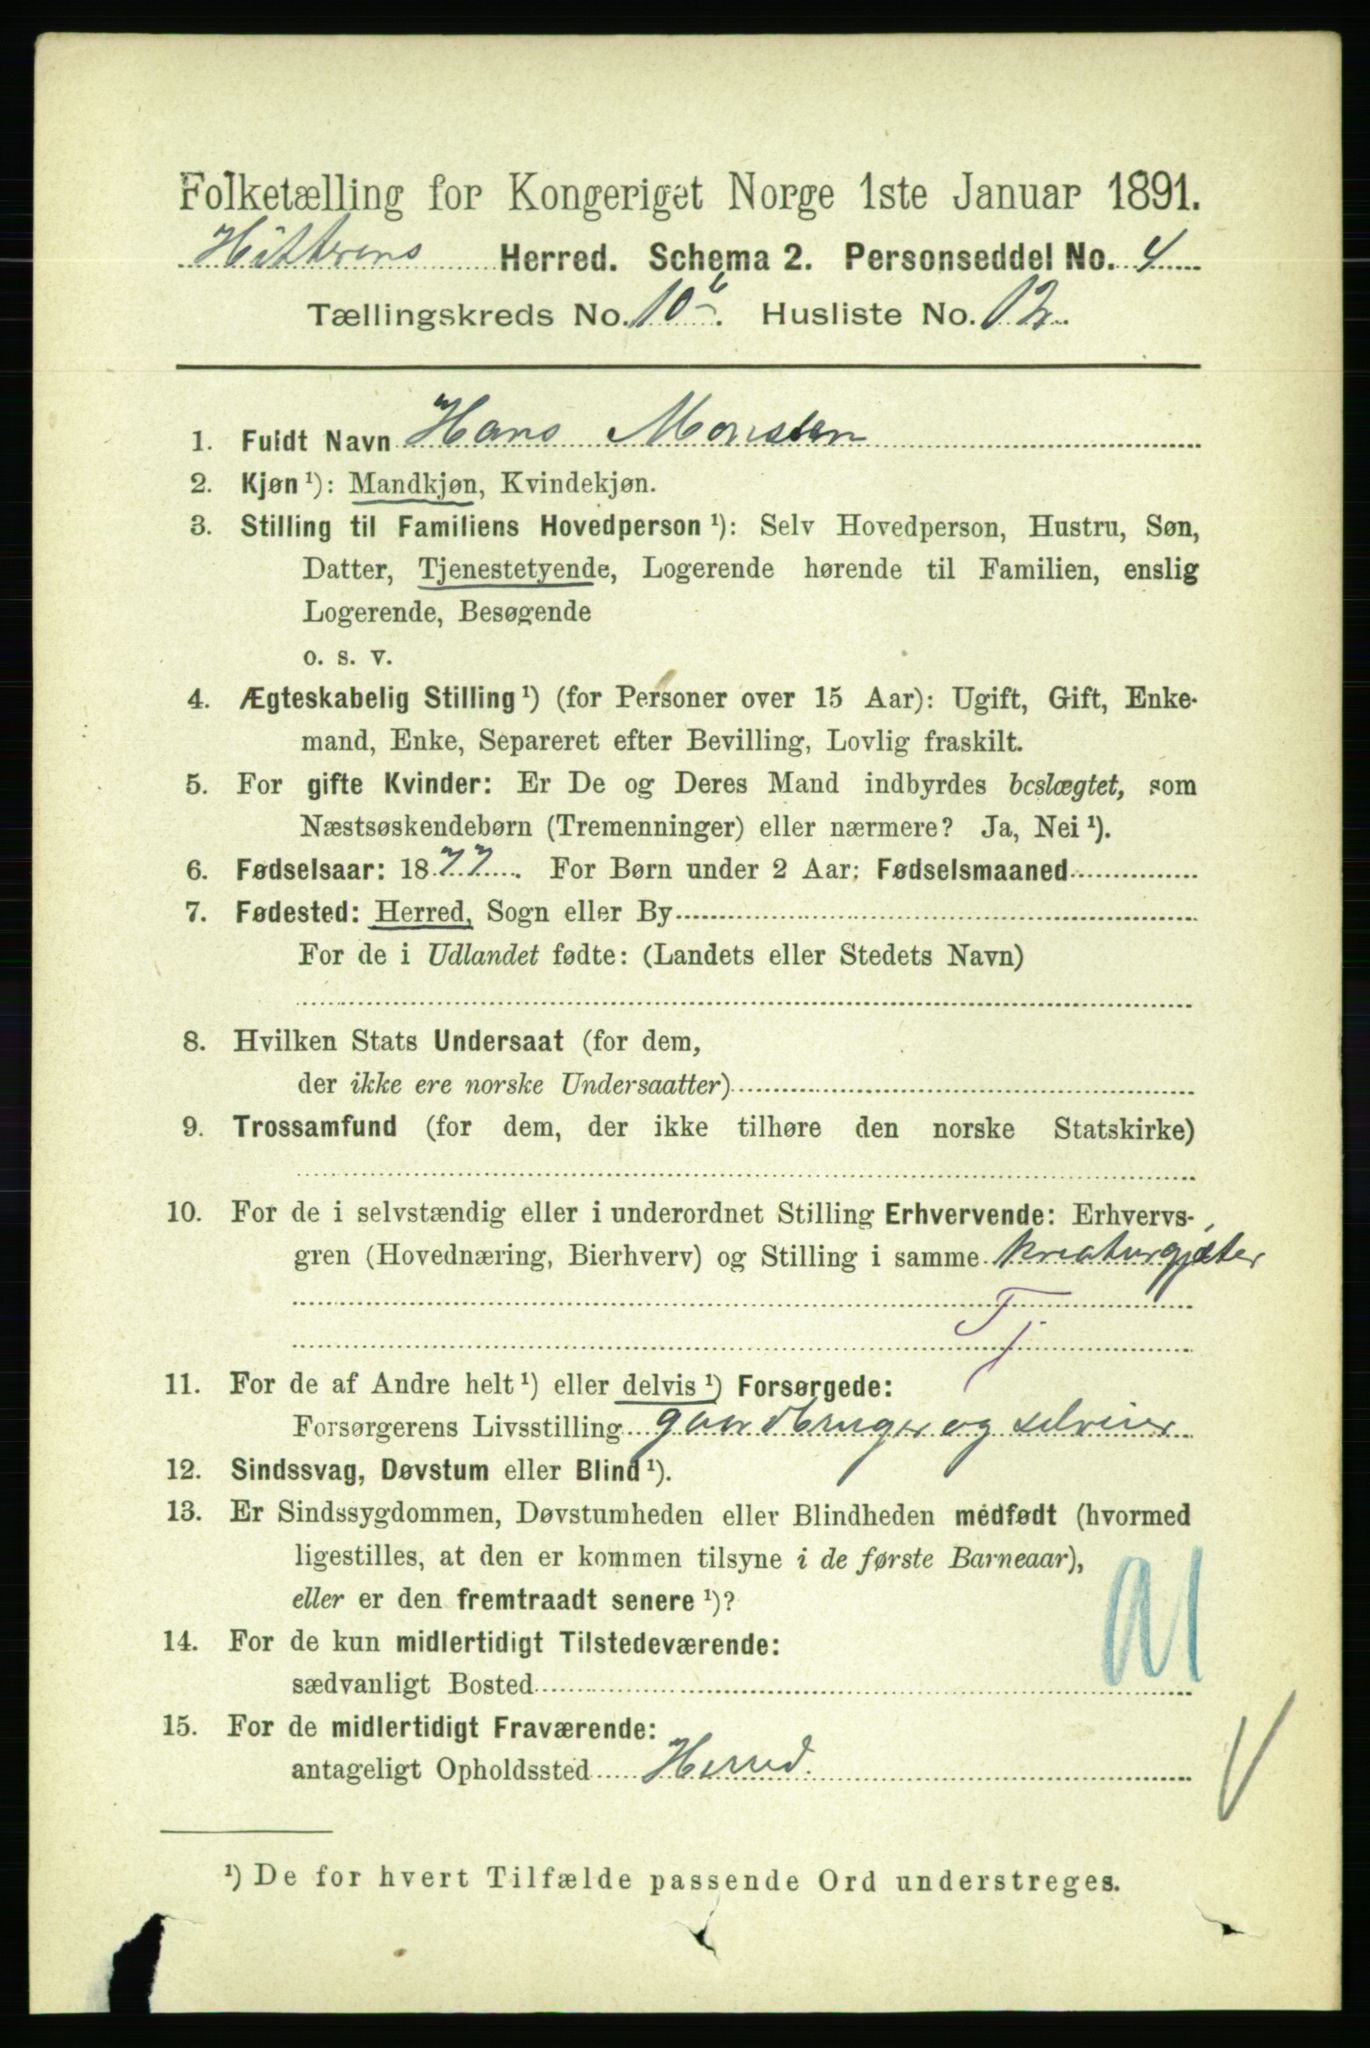 Folketælling for Kongeriget Norge 1ste Januar 1891.
Hitterens Herred. Schema 2. Personseddel No. 4
Tællingskreds No. 10 Husliste No. 12
1. Fuldt Navn Hans Monsen
2. Kjøn ¹): Mandkjøn, Kvindekjøn.
3. Stilling til Familiens Hovedperson ¹): Selv Hovedperson, Hustru, Søn,
Datter, Tjenestetyende, Logerende hørende til Familien, enslig
Logerende, Besøgende
o. s. v.
4. Ægteskabelig Stilling ¹) (for Personer over 15 Aar): Ugift, Gift, Enke-
mand, Enke, Separeret efter Bevilling, Lovlig fraskilt.
5. For gifte Kvinder: Er De og Deres Mand indbyrdes beslægtet, som
Næstsøskendebørn (Tremenninger) eller nærmere? Ja, Nei ¹).
6. Fødselsaar: 1877. For Børn under 2 Aar: Fødselsmaaned
7. Fødested: Herred, Sogn eller By
For de i Udlandet fødte: (Landets eller Stedets Navn)
8. Hvilken Stats Undersaat (for dem,
der ikke ere norske Undersaatter)
9. Trossamfund (for dem, der ikke tilhøre den norske Statskirke)
10. For de i selvstændig eller i underordnet Stilling Erhvervende: Erhvervs-
gren (Hovednæring, Bierhverv) og Stilling i samme kreaturgjæter
Tj
11. For de af Andre helt ¹) eller delvis ¹) Forsørgede:
Forsørgerens Livsstilling gaardbruger og selveier
12. Sindssvag, Døvstum eller Blind ¹).
13. Er Sindssygdommen, Døvstumheden eller Blindheden medfødt (hvormed
ligestilles, at den er kommen tilsyne i de første Barneaar),
eller er den fremtraadt senere ¹)?
14. For de kun midlertidigt Tilstedeværende:
sædvanligt Bosted
15. For de midlertidigt Fraværende:
antageligt Opholdssted Herred.
¹) De for hvert Tilfælde passende Ord understreges.